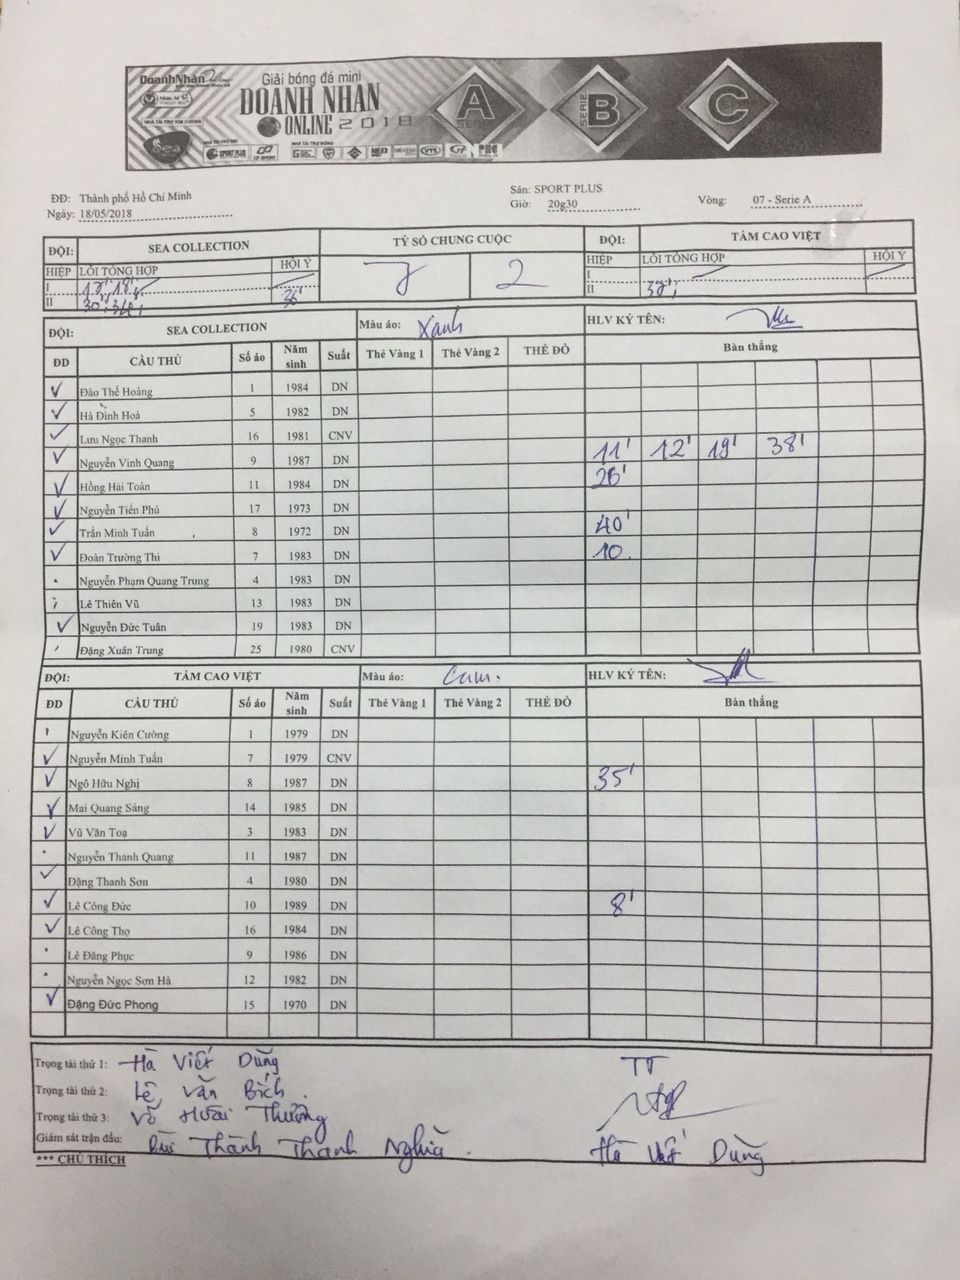 DoanhNhân Online
Giải bóng đá mini
DOANH NHÂN
ONLINE 2018
NHÀ TÀI TRỢ KIM CƯƠNG
Sea
SPORT PLUS
A
SERIE
SERIE
B
C
ĐĐ: Thành phố Hồ Chí Minh Sân: SPORT PLUS
Ngày: 18/05/2018 Giờ: 20g30 Vòng: 07 - Serie A
ĐỘI: SEA COLLECTION TỶ SỐ CHUNG CUỘC ĐỘI: TẦM CAO VIỆT
HIỆP LỖI TỔNG HỢP HỘI Ý 7 2 HIỆP LỖI TỔNG HỢP HỘI Ý
I I
II 36' II 37',
ĐỘI: SEA COLLECTION Màu áo: Xanh HLV KÝ TÊN:
ĐD CẦU THỦ Số áo Năm sinh Suất Thẻ Vàng 1 Thẻ Vàng 2 THẺ ĐỎ Bàn thắng
Đào Thế Hoàng 1 1984 DN
Hà Đình Hoà 5 1982 DN
Lưu Ngọc Thanh 16 1981 CNV
Nguyễn Vinh Quang 9 1987 DN 11' 12' 19' 38'
Hồng Hải Toàn 11 1984 DN 26'
Nguyễn Tiến Phú 17 1973 DN
Trần Minh Tuấn 8 1972 DN 40'
Đoàn Trường Thi 7 1983 DN 10
Nguyễn Phạm Quang Trung 4 1983 DN
Lê Thiên Vũ 13 1983 DN
Nguyễn Đức Tuân 19 1983 DN
Đặng Xuân Trung 25 1980 CNV
ĐỘI: TẦM CAO VIỆT Màu áo: Cam. HLV KÝ TÊN:
ĐD CẦU THỦ Số áo Năm sinh Suất Thẻ Vàng 1 Thẻ Vàng 2 THẺ ĐỎ Bàn thắng
Nguyễn Kiên Cường 1 1979 DN
Nguyễn Minh Tuấn 7 1979 CNV
Ngô Hữu Nghị 8 1987 DN 35'
Mai Quang Sáng 14 1985 DN
Vũ Văn Toạ 3 1983 DN
Nguyễn Thanh Quang 11 1987 DN
Đặng Thanh Sơn 4 1980 DN
Lê Công Đức 10 1989 DN 8'
Lê Công Thọ 16 1984 DN
Lê Đăng Phục 9 1986 DN
Nguyễn Ngọc Sơn Hà 12 1982 DN
Đặng Đức Phong 15 1970 DN
Trọng tài thứ 1: Hà Viết Dũng TT
Trọng tài thứ 2: Lê Văn Bích.
Trọng tài thứ 3: Võ Hoài Thưởng
Giám sát trận đấu: Bùi Thành Thanh Nghĩa. Hà Viết Dũng
*** CHÚ THÍCH